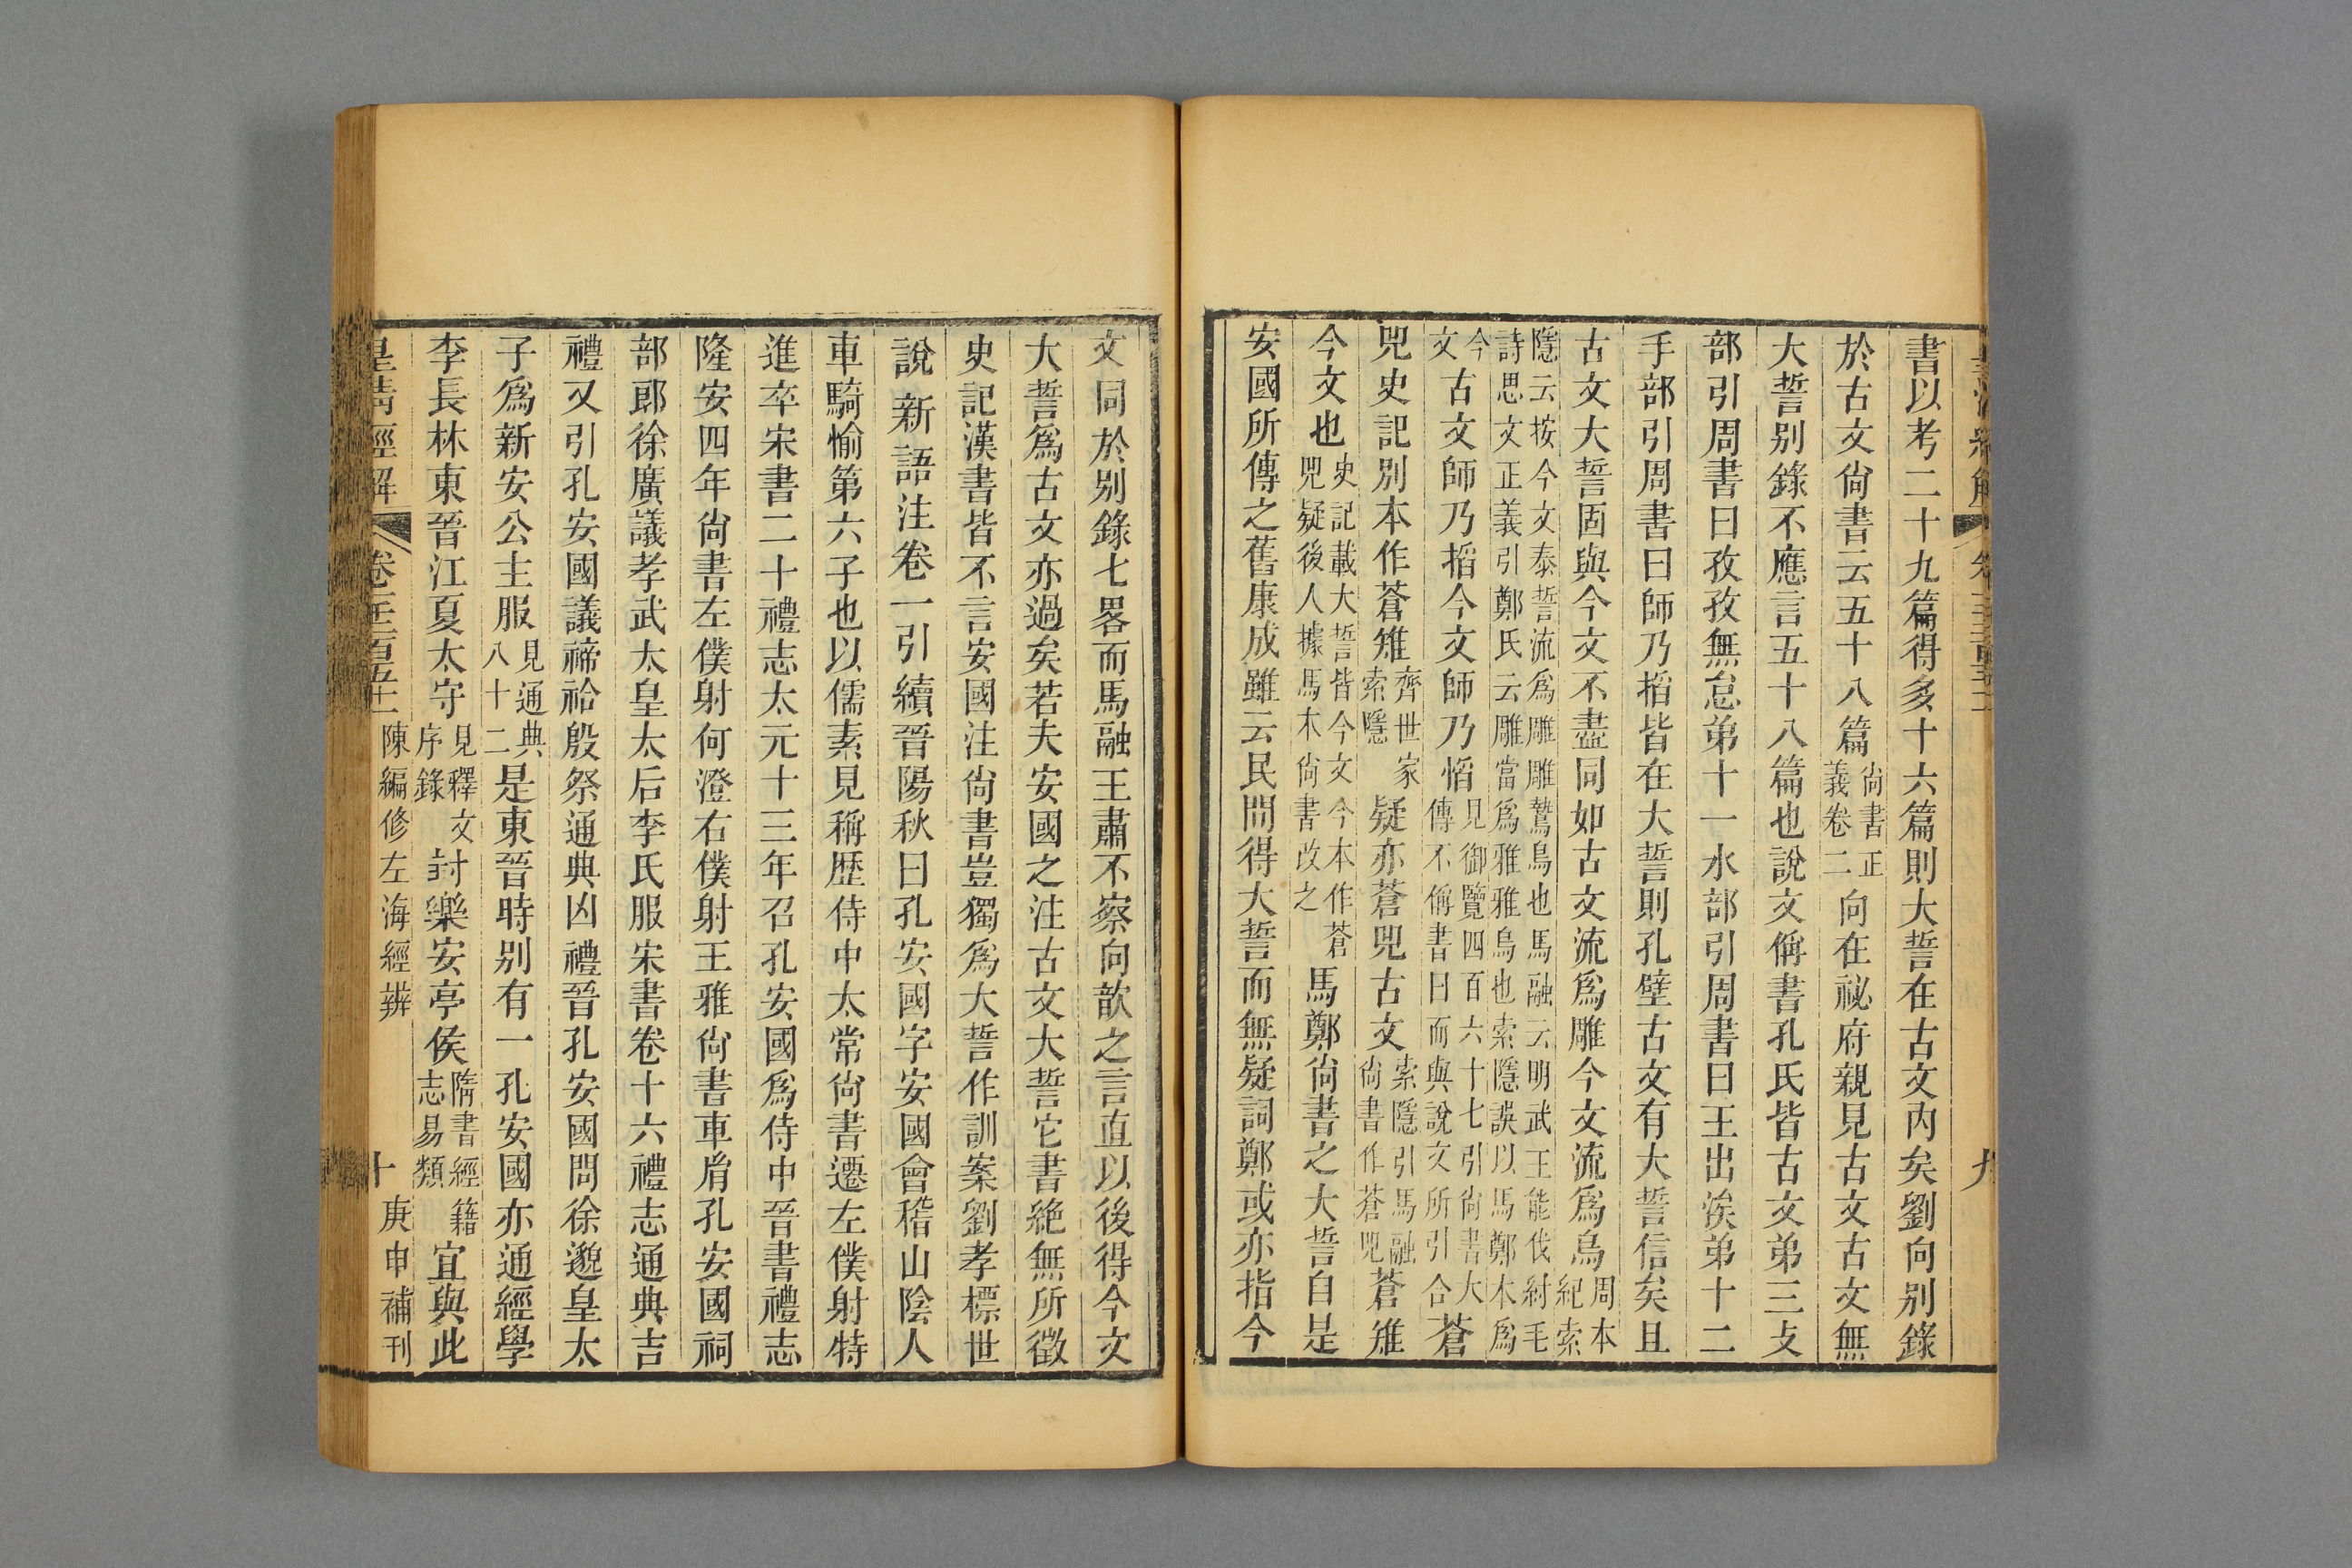 書以考二十九篇得多十六篇則大誓在古文內矣劉向别錄
於古文尙書云五十八篇尙書正義卷二向在祕府親見古文古文無
大誓别錄不應言五十八篇也說文偁書孔氏皆古文弟三攴
部引周書曰孜孜無怠弟十一水部引周書曰王出涘弟十二
手部引周書曰師乃搯皆在大誓則孔壁古文有大誓信矣且
古文大誓固與今文不盡同如古文流爲雕今文流爲烏周本紀索
隱云按今文泰誓流爲雕雕鷙鳥也馬融云明武王能伐紂毛詩思文正義引鄭氏云雕當爲雅雅烏也索隱誤以馬鄭本爲
今文古文師乃搯今文師乃慆見御覽四百六十七引尙書大傳不偁書曰而與說文所引合蒼
兕史記别本作蒼雉齊世家索隱疑亦蒼兕古文索隱引馬融尙書作蒼兕蒼雉
今文也史記載大誓皆今文今本作蒼兕疑後人據馬本尙書改之馬鄭尙書之大誓自是
安國所傳之舊康成雖云民間得大誓而無疑詞鄭或亦指今
文同於别錄七畧而馬融王肅不察向歆之言直以後得今文
大誓爲古文亦過矣若夫安國之注古文大誓它書絶無所徵
史記漢書皆不言安國注尙書豈獨爲大誓作訓案劉孝標世
說新語注卷一引續晉陽秋曰孔安國字安國會稽山陰人
車騎愉第六子也以儒素見稱歷侍中太常尙書遷左僕射特
進卒宋書二十禮志太元十三年召孔安國爲侍中晉書禮志
隆安四年尙書左僕射何澄右僕射王雅尙書車胤孔安國祠
部郎徐廣議孝武太皇太后李氏服宋書卷十六禮志通典吉
禮又引孔安國議禘祫殷祭通典凶禮晉孔安國問徐邈皇太
子爲新安公主服見通典八十二是東晉時别有一孔安國亦通經學
李長林東晉江夏太守見釋文序錄封樂安亭侯隋書經籍志易類宜與此
皇清經解 卷千二百五十一 陳編修左海經辨 十 庚申補刊